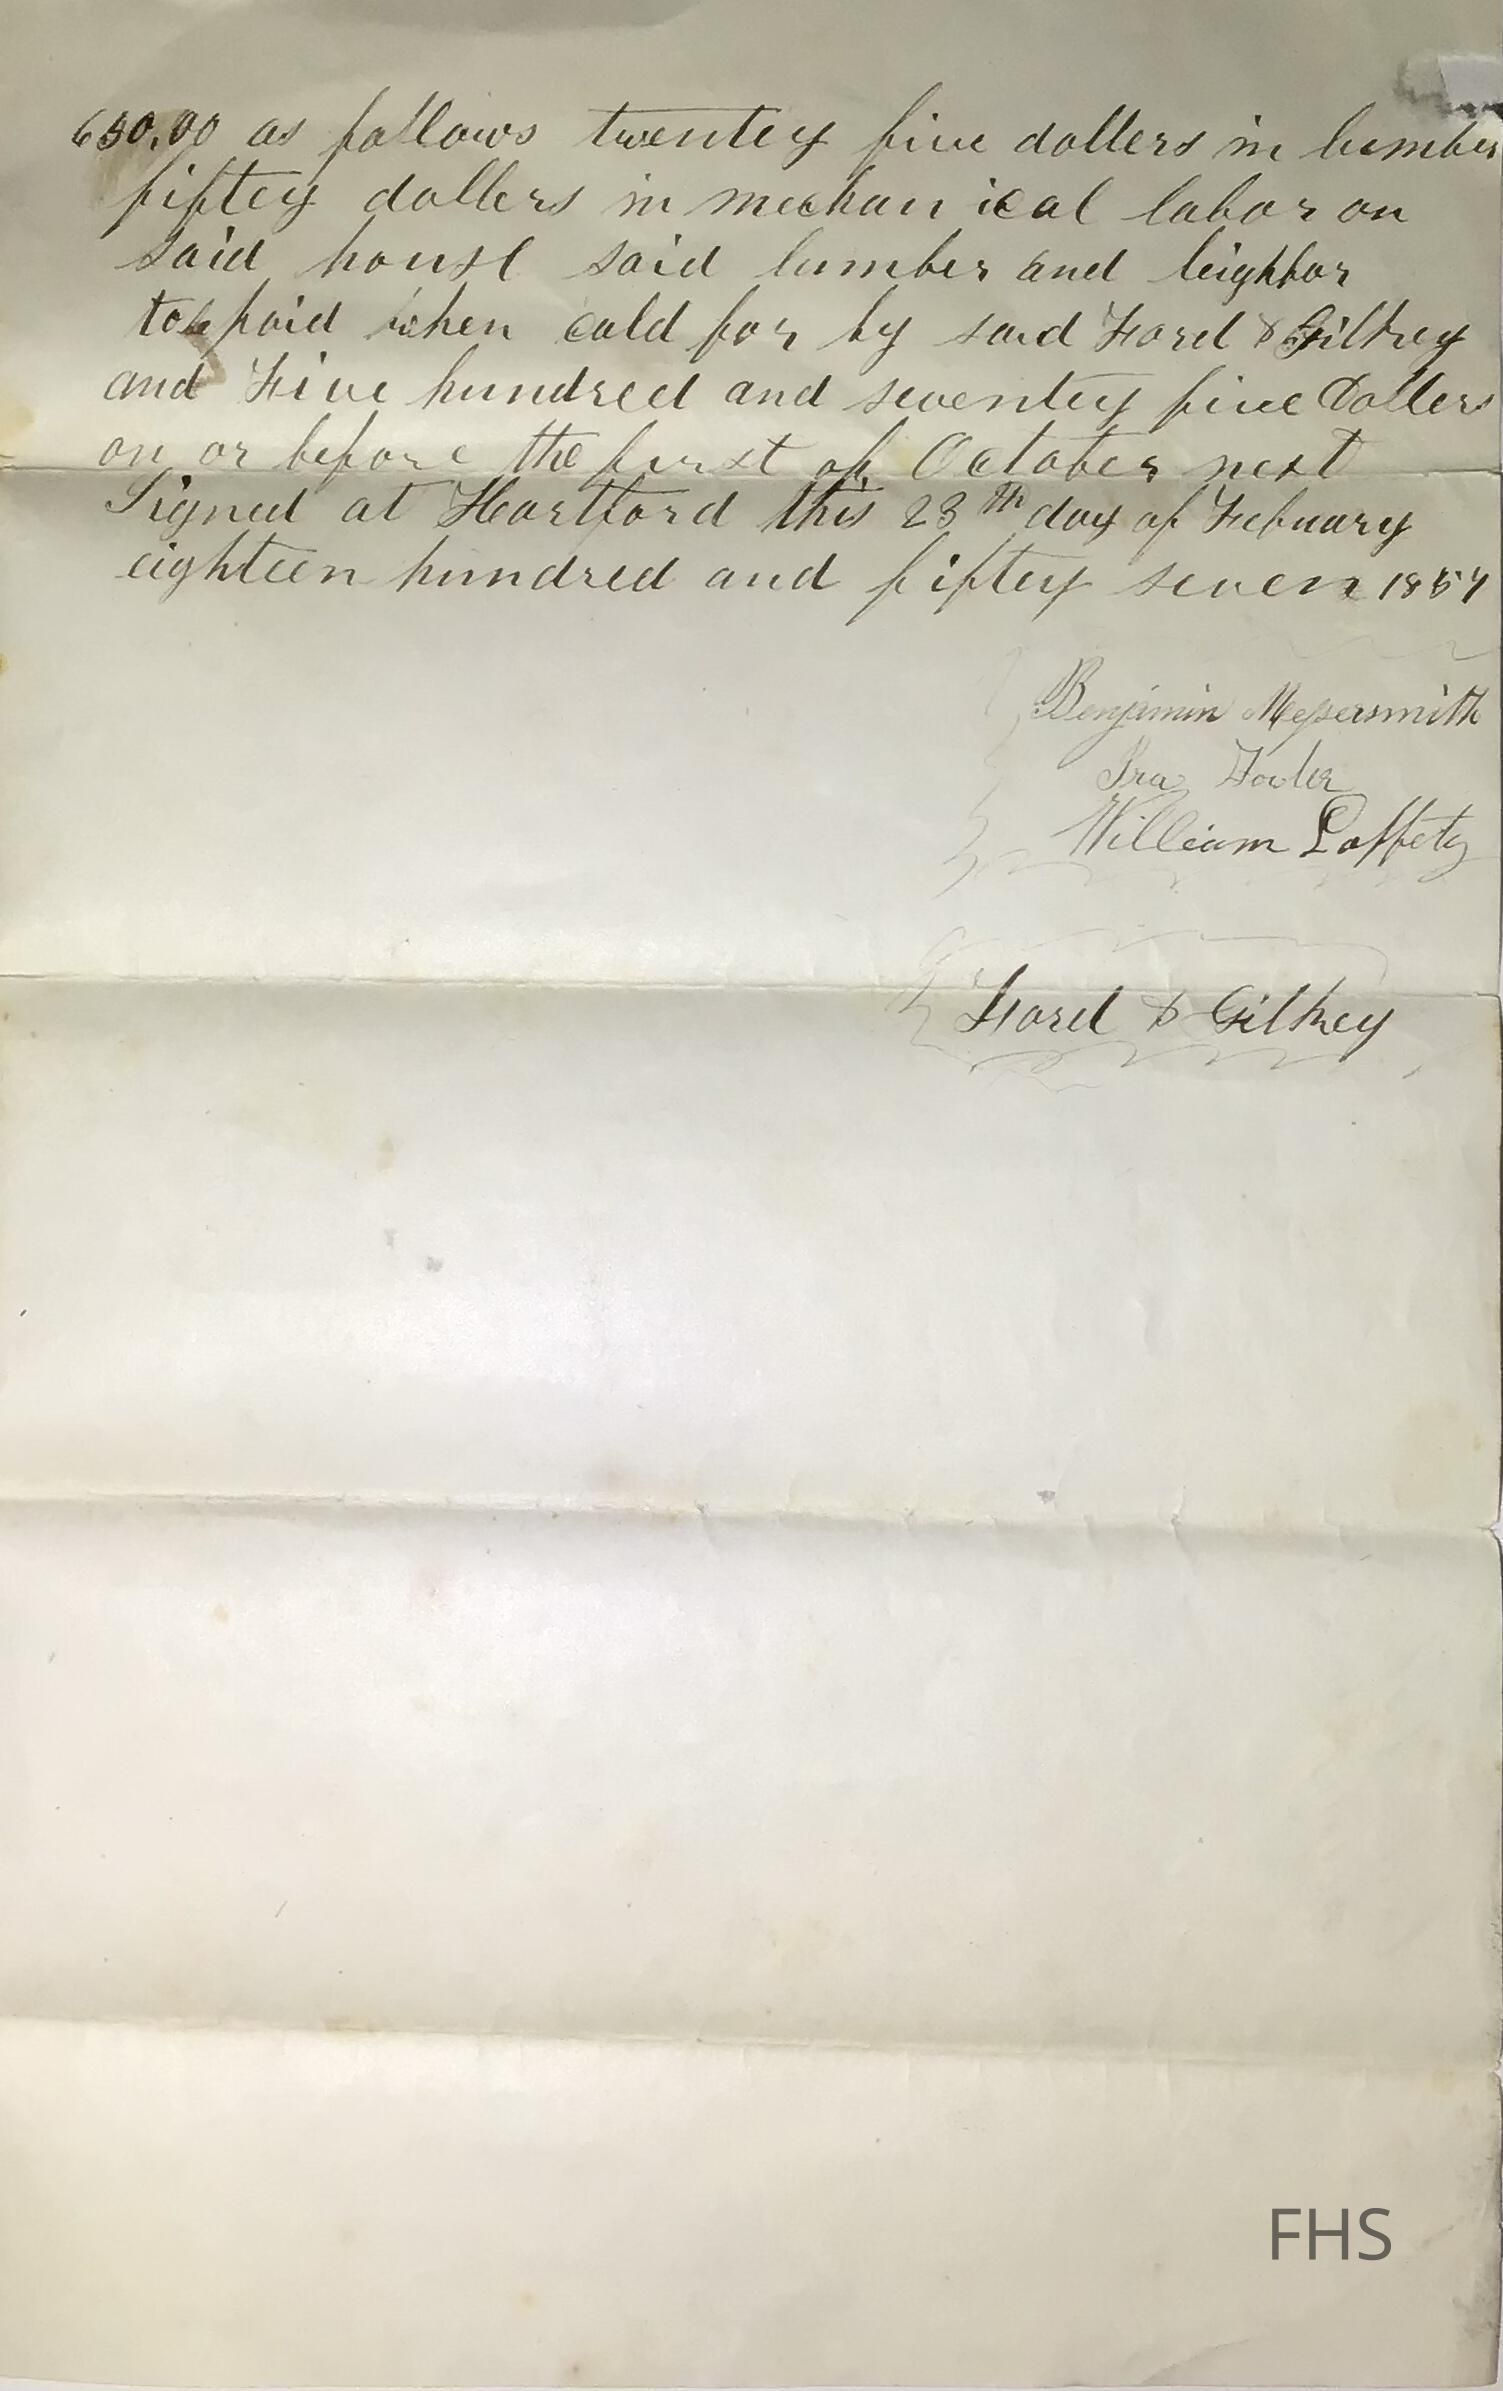 650.00 as follows twentey five dollers in lumber
fiftey dollers in mechanical labor on
said house said lumber and leighbor
to be paid when cald for by said Ford & Gilkey
and Five hundred and seventey five Dollers
on or before the first of October next
Signed at Hartford this 23th day of Febuary
eighteen hundred and fiftey seven 1857
Benjimin Messersmith
Ira Fowler
William Laffety
Ford & Gilkey
FHS